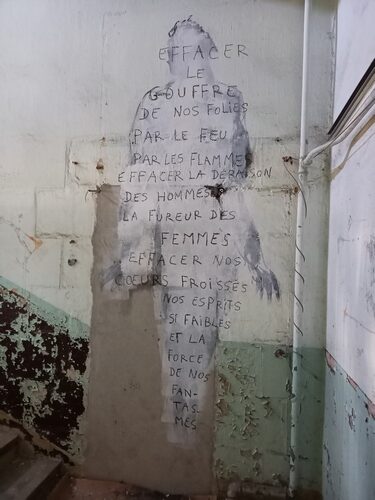 EFFACER
LE
GOUFFRE
DE NOS FOLIES
PAR LE FEU
PAR LES FLAMMES
EFFACER LA DÉRAISON
DES HOMMES
LA FUREUR DES
FEMMES
EFFACER NOS
COEURS FROISSÉS
NOS ESPRITS
SI FAIBLES
ET LA
FORCE
DE NOS
FAN-
TAS-
MES